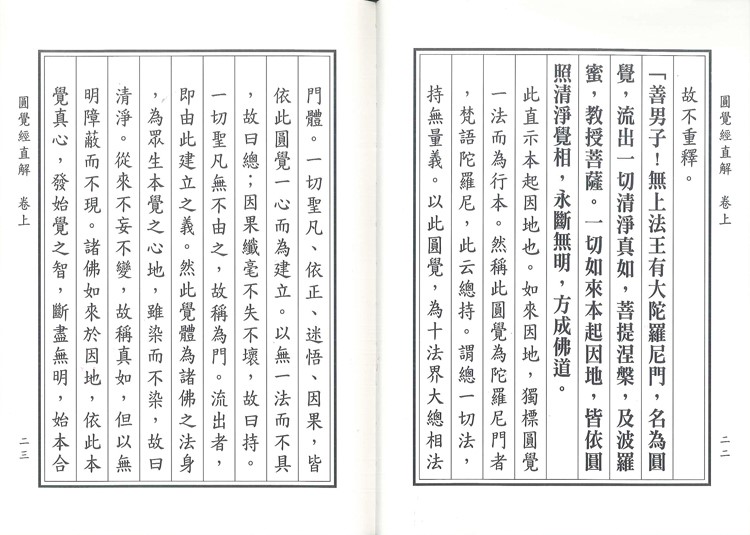 圓覺經直解 卷上
二二
故不重釋。
「善男子！無上法王有大陀羅尼門，名為圓
覺，流出一切清淨真如，菩提涅槃，及波羅
蜜，教授菩薩。一切如來本起因地，皆依圓
照清淨覺相，永斷無明，方成佛道。
此直示本起因地也。如來因地，獨標圓覺
一法而為行本。然稱此圓覺為陀羅尼門者
，梵語陀羅尼，此云總持。謂總一切法，
持無量義。以此圓覺，為十法界大總相法
門體。一切聖凡、依正、迷悟、因果，皆
依此圓覺一心而為建立。以無一法而不具
，故曰總；因果纖毫不失不壞，故曰持。
一切聖凡無不由之，故稱為門。流出者，
即由此建立之義。然此覺體為諸佛之法身
，為眾生本覺之心地，雖染而不染，故曰
清淨。從來不妄不變，故稱真如，但以無
明障蔽而不現。諸佛如來於因地，依此本
覺真心，發始覺之智，斷盡無明，始本合
圓覺經直解 卷上
二三